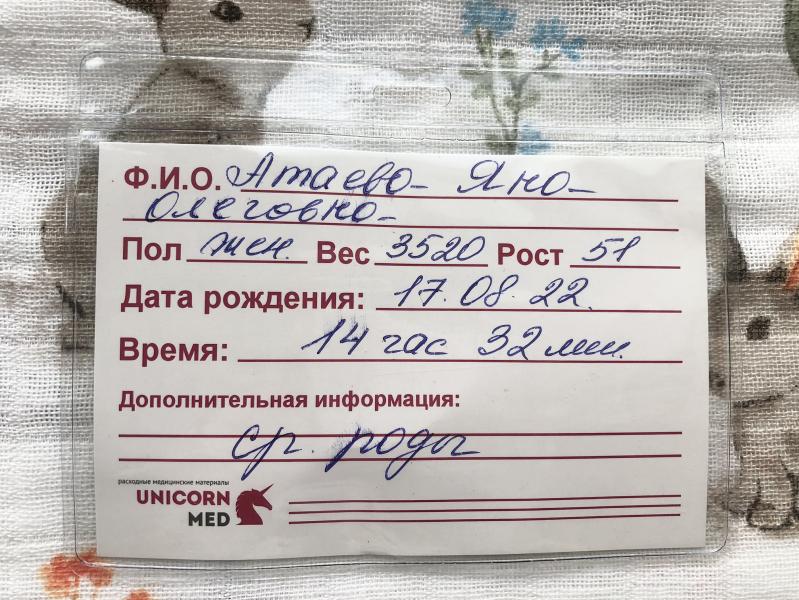 Ф.И.О. Атаева Яна
Олеговна
Пол жен. Вес 3520 Рост 51
Дата рождения: 17.08.22.
Время: 14 час 32 мин.
Дополнительная информация:
ср. роды
расходные медицинские материалы
UNICORN
MED